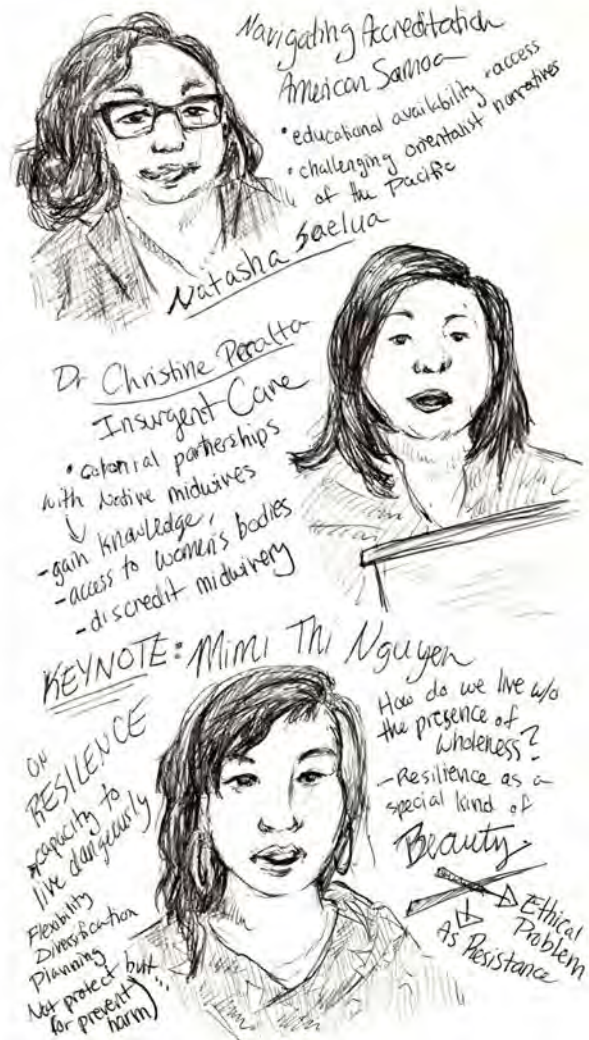 Navigating Accreditation
American Samoa
• educational availability + access
• challenging orientalist narratives
of the Pacific
Natasha Saelua
Dr Christine Peralta
Insurgent Care
• colonial partnerships
with Native midwives
↓
- gain knowledge,
- access to women's bodies
- discredit midwivery
KEYNOTE: Mimi Thi Nguyen
ON
RESILENCE
capacity to
live dangeously
Flexibility
Diversification
Planning
Not protect but...
(or prevent
harm)
How do we live w/o
the presence of
wholeness?
- Resilience as a
special kind of
Beauty
Ethical
Problem
As Resistance